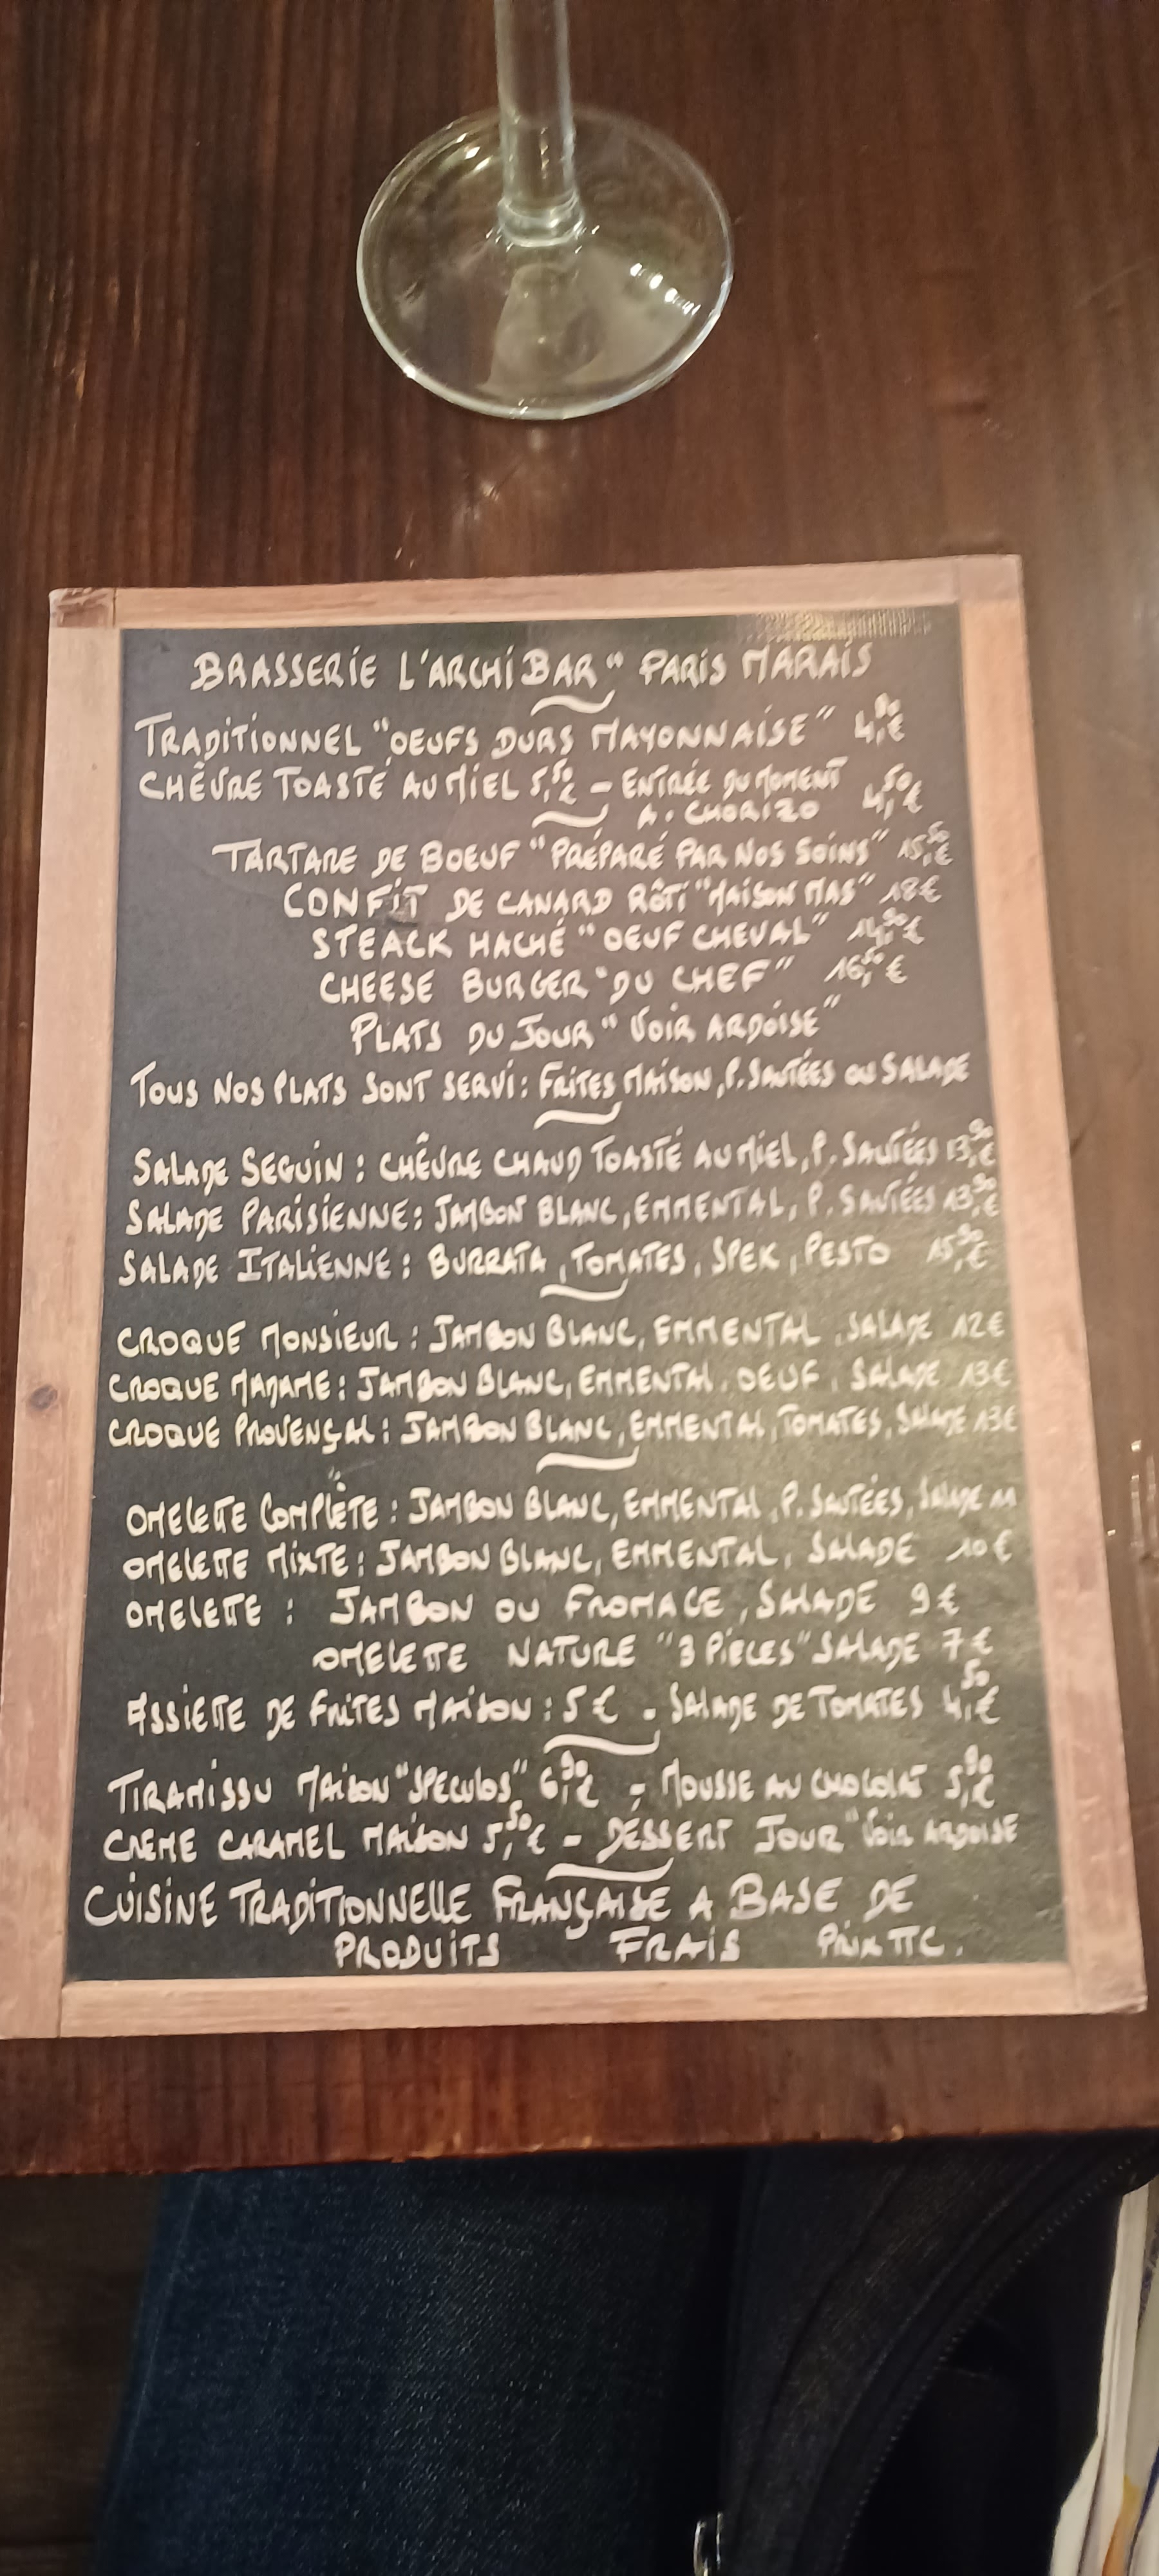 BRASSERIE L'ARCHIBAR" PARIS MARAIS
TRADITIONNEL "OEUFS DURS MAYONNAISE" 4,90€
CHÊVRE TOASTÉ AU MIEL 5,50€ - ENTRÉE DU MOMENT 4,50€
A. CHORIZO
TARTARE DE BOEUF "PRÉPARÉ PAR NOS SOINS" 15,50€
CONFIT DE CANARD RÔTI "MAISON MAS" 18€
STEACK HACHÉ "OEUF CHEVAL" 14,90€
CHEESE BURGER "DU CHEF" 16,50€
PLATS DU JOUR "VOIR ARDOISE"
TOUS NOS PLATS SONT SERVI: FRITES MAISON, P. SAUTÉES OU SALADE
SALADE SEGUIN: CHÊVRE CHAUD TOASTÉ AU MIEL, P. SAUTÉES 13,90€
SALADE PARISIENNE: JAMBON BLANC, EMMENTAL, P. SAUTÉES 13,90€
SALADE ITALIENNE: BURRATA, TOMATES, SPEK, PESTO 15,90€
CROQUE MONSIEUR: JAMBON BLANC, EMMENTAL, SALADE 12€
CROQUE MADAME: JAMBON BLANC, EMMENTAL, OEUF, SALADE 13€
CROQUE PROVENÇAL: JAMBON BLANC, EMMENTAL, TOMATES, SALADE 13€
OMELETTE COMPLÈTE: JAMBON BLANC, EMMENTAL, P. SAUTÉES, SALADE 11
OMELETTE MIXTE: JAMBON BLANC, EMMENTAL, SALADE 10€
OMELETTE: JAMBON OU FROMAGE, SALADE 9€
OMELETTE NATURE "3 PIÈCES" SALADE 7€
ASSIETTE DE FRITES MAISON: 5€ - SALADE DE TOMATES 4,50€
TIRAMISSU MAISON "SPECULOS" 6,90€ - MOUSSE AU CHOCOLAT 5,90€
CRÈME CARAMEL MAISON 5,50€ - DESSERT JOUR "VOIR ARDOISE
CUISINE TRADITIONNELLE FRANÇAISE A BASE DE
PRODUITS FRAIS PRIX TTC.